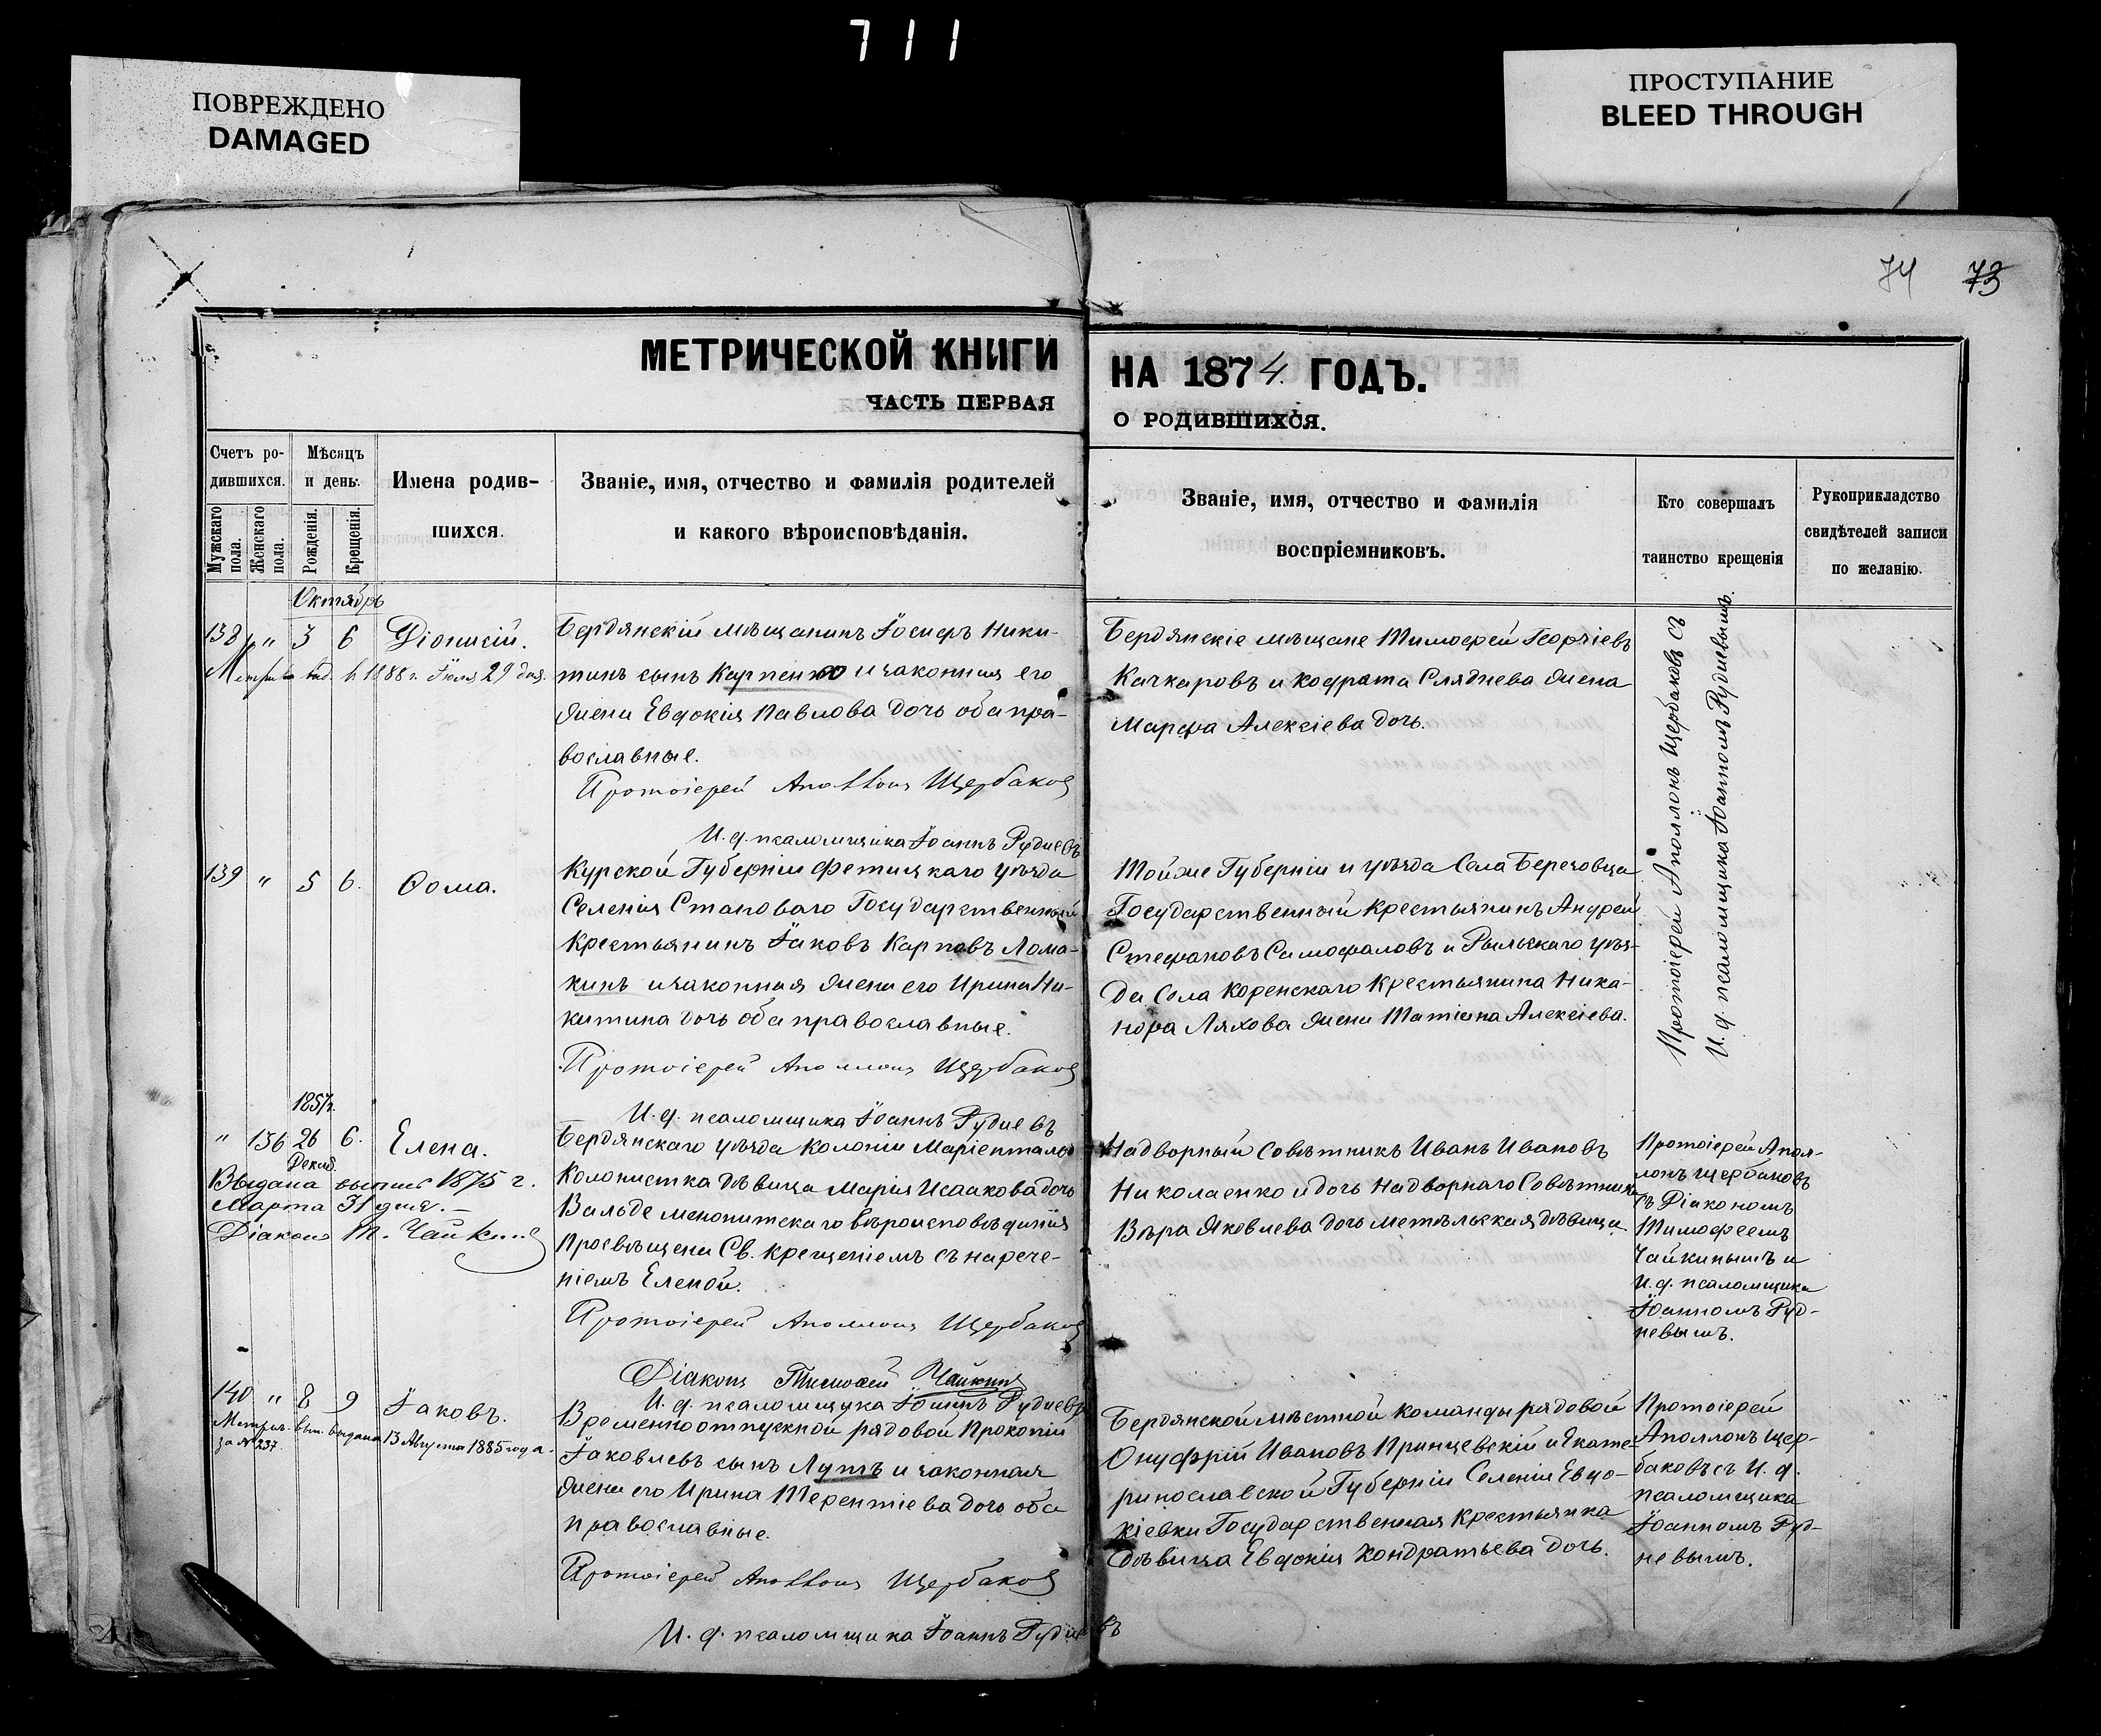 711
ПОВРЕЖДЕНО
DAMAGED
ПРОСТУПАНИЕ
BLEED THROUGH
74 73
МЕТРИЧЕСКОЙ КНИГИ
НА 1874 ГОДЪ.
ЧАСТЬ ПЕРВАЯ
О РОДИВШИХСЯ.
Счетъ ро-
дившихся.
Мужскаго пола.
Женскаго пола.
Мѣсяцъ
и день.
Рожденія.
Крещенія.
Имена родив-
шихся.
Званіе, имя, отчество и фамилія родителей
и какого вѣроисповѣданія.
Званіе, имя, отчество и фамилія
воспріемниковъ.
Кто совершалъ
таинство крещенія
Рукоприкладство
свидѣтелей записи
по желанію.
Октябрь
138 " 3 6 Діонисій.
1888 г. Іюля 29 дня.
Бердянскій мѣщанинъ Іосифъ Ники-
тинъ сынъ Карпенко и законная его
жена Евдокія Павлова дочь оба пра-
вославные.
Протоіерей Аполлонъ Щербаковъ
И. д. псаломщика Іоаннъ Рудневъ
Бердянскіе мѣщане Тимофей Георгіевъ
Качкаровъ и Кодрата Сляднева жена
Марфа Алексіева дочь.
Протоіерей Аполлонъ Щербаковъ съ
И. д. псаломщика Іоанномъ Рудневымъ.
139 " 5 6. Ѳома.
Курской Губерніи Фетишкаго уѣзда
Селенія Становаго Государственный
Крестьянинъ Іаковъ Карповъ Лома-
кинъ и законная жена его Ирина Ни-
китина дочь оба православные.
Протоіерей Аполлонъ Щербаковъ
И. д. псаломщика Іоаннъ Рудневъ
Тойже Губерніи и уѣзда Села Береговца
Государственный Крестьянинъ Андрей
Стефановъ Самофаловъ и Рыльскаго уѣз-
да Села Коренскаго Крестьянина Ника-
нора Ляхова жена Татіана Алексіева.
1857г.
" 136 26 6. Елена.
Декаб.
Выдана выпись 1875 г.
Марта 31 дня. —
Діаконъ Т. Чайкинъ
Бердянскаго уѣзда Колоніи Маріенталь
Колонистка дѣвица Марія Исаакова дочь
Вальде менонитскаго вѣроисповѣданія
Просвѣщена Св. Крещеніемъ съ нарече-
ніемъ Еленой.
Протоіерей Аполлонъ Щербаковъ
Діаконъ Тимофей Чайкинъ
И. д. псаломщика Іоаннъ Рудневъ
Надворный Совѣтникъ Иванъ Ивановъ
Николаенко и дочь Надворнаго Совѣтника
Вѣра Яковлева дочь Метельская дѣвица.
Протоіерей Апол-
лонъ Щербаковъ
съ Діакономъ
Тимофеемъ
Чайкинымъ и
И. д. псаломщика
Іоанномъ Руд-
невымъ.
140 " 8 9 Іаковъ.
Метрич. вып. выдана 13 Августа 1885 года.
за № 237.
Временноотпускной рядовой Прокопій
Іаковлевъ сынъ Лутъ и законная
жена его Ирина Терентіева дочь оба
православные.
Протоіерей Аполлонъ Щербаковъ
И. д. псаломщика Іоаннъ Рудневъ
Бердянской мѣстной команды рядовой
Онуфрій Ивановъ Принцевскій и Екате-
ринославской Губерніи Селенія Евдо-
кіевки Государственная Крестьянка
дѣвица Евдокія Кондратьева дочь.
Протоіерей
Аполлонъ Щер-
баковъ съ И. д.
псаломщика
Іоанномъ Руд-
невымъ.